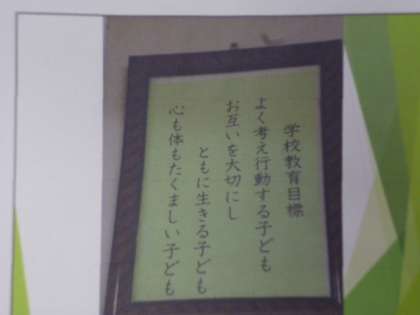 学校教育目標
よく考え行動する子ども
お互いを大切にし
ともに生きる子ども
心も体もたくましい子ども